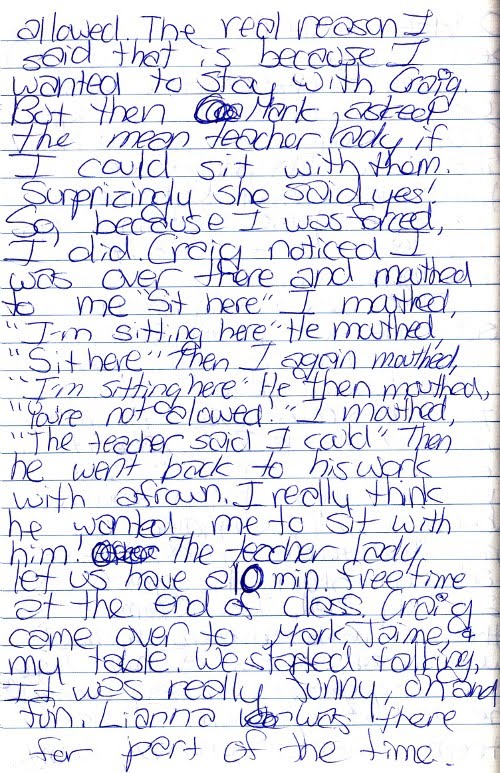 allowed. The real reason I
said that is because I
wanted to stay with Craig.
But then Mark, asked
the mean teacher lady if
I could sit with them.
Surprizingly she said yes!
So, because I was forced,
I did. Craig noticed I
was over there and mouthed
to me "Sit here" I mouthed,
"I'm sitting here" He mouthed,
"Sit here" Then I again mouthed,
"I'm sitting here" He then mouthed,
"You're not alowed!" I mouthed,
"The teacher said I could" Then
he went back to his work
with a frown. I really think
he wanted me to sit with
him! The teacher lady
let us have a 10 min. free time
at the end of class. Craig
came over to Mark, Jaime, &
my table. We started talking,
It was really funny, oh and
fun. Lianna was there
for part of the time.